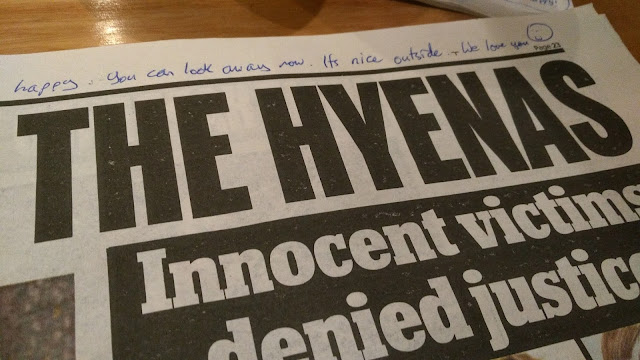 happy. You can look away now. Its nice outside. + We love you
Page 23
THE HYENAS
Innocent victims
denied justice